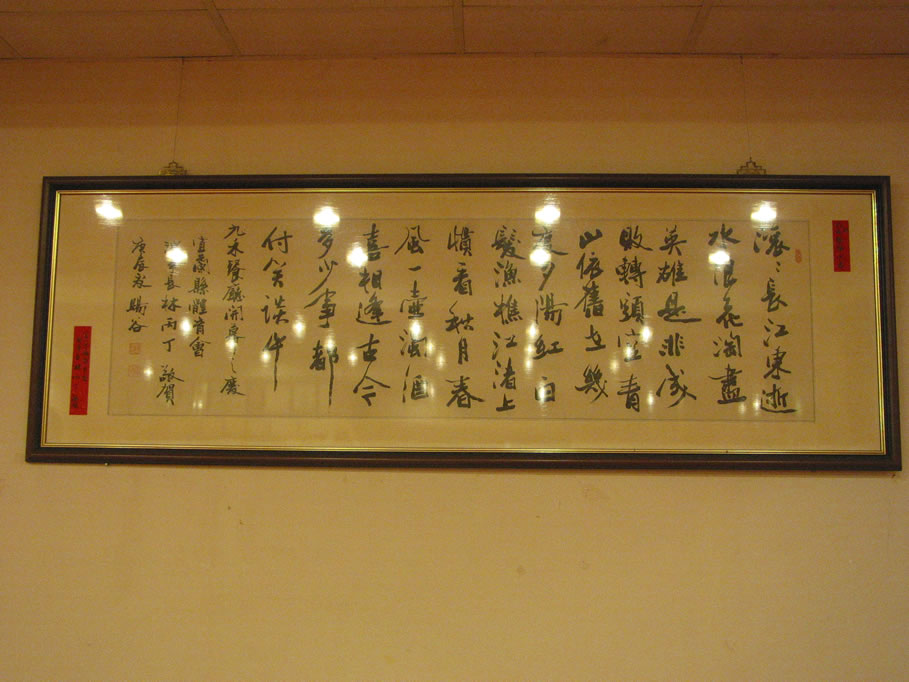 滾々長江東逝
水浪花淘盡
英雄是非成
敗轉頭空青
山依舊在幾
度夕陽紅白
髮漁樵江渚上
慣看秋月春
風一壺濁酒
喜相逢古今
多少事都
付笑談中
九禾餐廳開幕之慶
宜蘭縣體育會
長林雨丁敬賀
庚辰春暘谷